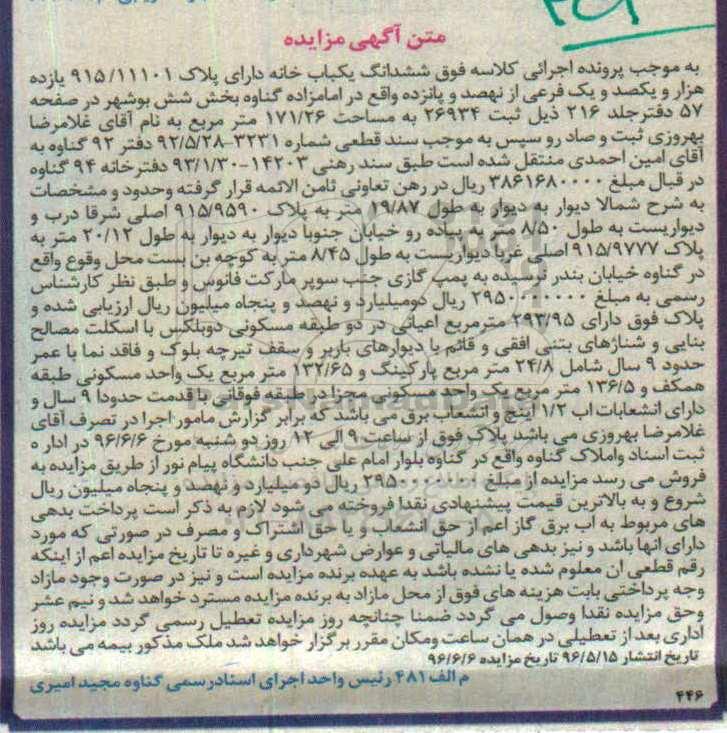 متن آگهی مزایده
به موجب پرونده اجرائی کلاسه فوق ششدانگ یکباب خانه دارای پلاک ۹۱۵/۱۱۱۰۱ یازده
هزار و یکصد و یک فرعی از نهصد و پانزده واقع در امامزاده گناوه بخش شش بوشهر در صفحه
۵۷ دفترجلد ۲۱۶ ذیل ثبت ۲۶۹۳۴ به مساحت ۱۷۱/۲۶ متر مربع به نام آقای غلامرضا
بهروزی ثبت و صادر و سپس به موجب سند قطعی شماره ۳۲۳۱-۹۲/۵/۲۸ دفتر ۹۲ گناوه به
آقای امین احمدی منتقل شده است طبق سند رهنی ۱۴۲۰۳-۹۳/۱/۳۰ دفترخانه ۹۴ گناوه
در قبال مبلغ ۳۸۶۱۶۸۰۰۰۰ ریال در رهن تعاونی ثامن الائمه قرار گرفته وحدود و مشخصات
به شرح شمالا دیوار به دیوار به طول ۱۹/۸۷ متر به پلاک ۹۱۵/۹۵۹۰ اصلی شرقا درب و
دیواریست به طول ۸/۵۰ متر به پیاده رو خیابان جنوبا دیوار به دیوار به طول ۲۰/۱۲ متر به
پلاک ۹۱۵/۹۷۷۷ اصلی غربا دیواریست به طول ۸/۴۵ متر به کوچه بن بست محل وقوع واقع
در گناوه خیابان بندر نرسیده به پمپ گازی جنب سوپر مارکت فانوس و طبق نظر کارشناس
رسمی به مبلغ ۲۹۵۰۰۰۰۰۰۰ ریال دومیلیارد و نهصد و پنجاه میلیون ریال ارزیابی شده و
پلاک فوق دارای ۲۹۳/۹۵ مترمربع اعیانی در دو طبقه مسکونی دوبلکس با اسکلت مصالح
بنایی و شناژهای بتنی افقی و قائم با دیوارهای باربر و سقف تیرچه بلوک و فاقد نما با عمر
حدود ۹ سال شامل ۲۴/۸ متر مربع پارکینگ و ۱۳۲/۶۵ متر مربع یک واحد مسکونی طبقه
همکف و ۱۳۶/۵ متر مربع یک واحد مسکونی مجزا در طبقه فوقانی با قدمت حدودا ۹ سال و
دارای انشعابات اب ۱/۲ اینچ و انشعاب برق می باشد که برابر گزارش مامور اجرا در تصرف آقای
غلامرضا بهروزی می باشد پلاک فوق از ساعت ۹ الی ۱۲ روز دو شنبه مورخ ۹۶/۶/۶ در ادار ه
ثبت اسناد واملاک گناوه واقع در گناوه بلوار امام علی جنب دانشگاه پیام نور از طریق مزایده به
فروش می رسد مزایده از مبلغ ۲۹۵۰۰۰۰۰۰۰ ریال دو میلیارد و نهصد و پنجاه میلیون ریال
شروع و به بالاترین قیمت پیشنهادی نقدا فروخته می شود لازم به ذکر است پرداخت بدهی
های مربوط به اب برق گاز اعم از حق انشعاب و یا حق اشتراک و مصرف در صورتی که مورد
دارای انها باشد و نیز بدهی های مالیاتی و عوارض شهرداری و غیره تا تاریخ مزایده اعم از اینکه
رقم قطعی ان معلوم شده یا نشده باشد به عهده برنده مزایده است و نیز در صورت وجود مازاد
وجه پرداختی بابت هزینه های فوق از محل مازاد به برنده مزایده مسترد خواهد شد و نیم عشر
وحق مزایده نقدا وصول می گردد ضمنا چنانچه روز مزایده تعطیل رسمی گردد مزایده روز
اداری بعد از تعطیلی در همان ساعت ومکان مقرر برگزار خواهد شد ملک مذکور بیمه می باشد
تاریخ انتشار ۹۶/۵/۱۵ تاریخ مزایده ۹۶/۶/۶
م الف ۴۸۱ رئیس واحد اجرای اسناد رسمی گناوه مجید امیری
۴۴۶